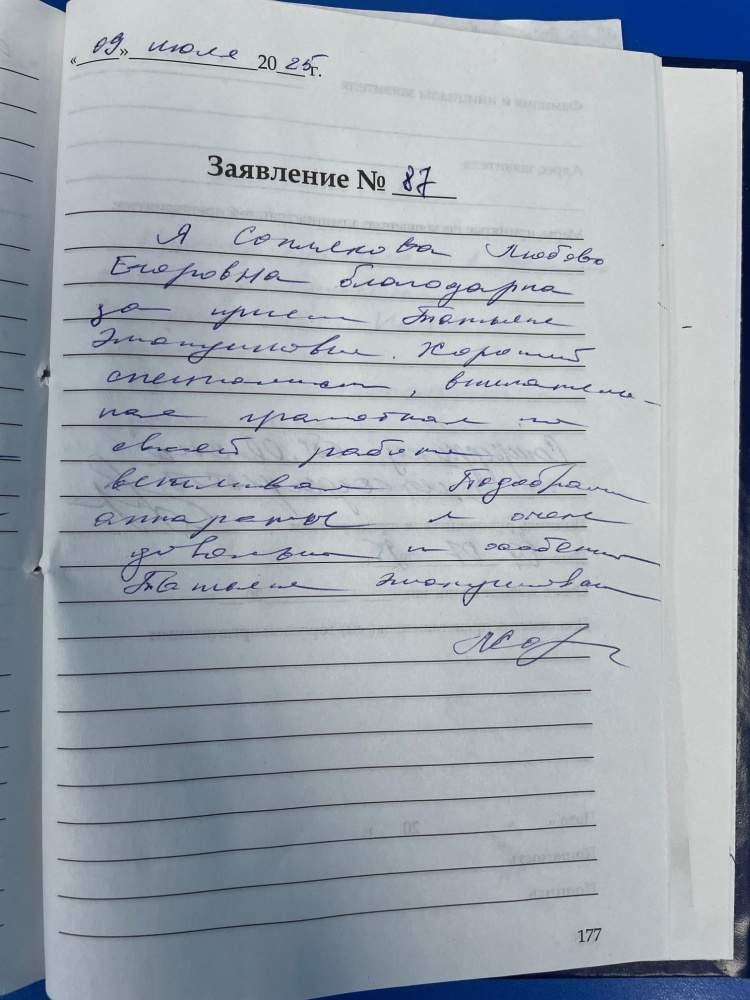 «09» июля 2025 г.
Заявление № 87
Я Соплякова Любовь
Егоровна благодарна
за прием Татьяне
хороший
специалист, вниматель-
ная грамотная по
своей работе
вежливая Подобрали
аппараты я очень
довольна и особенно
Татьяне
177